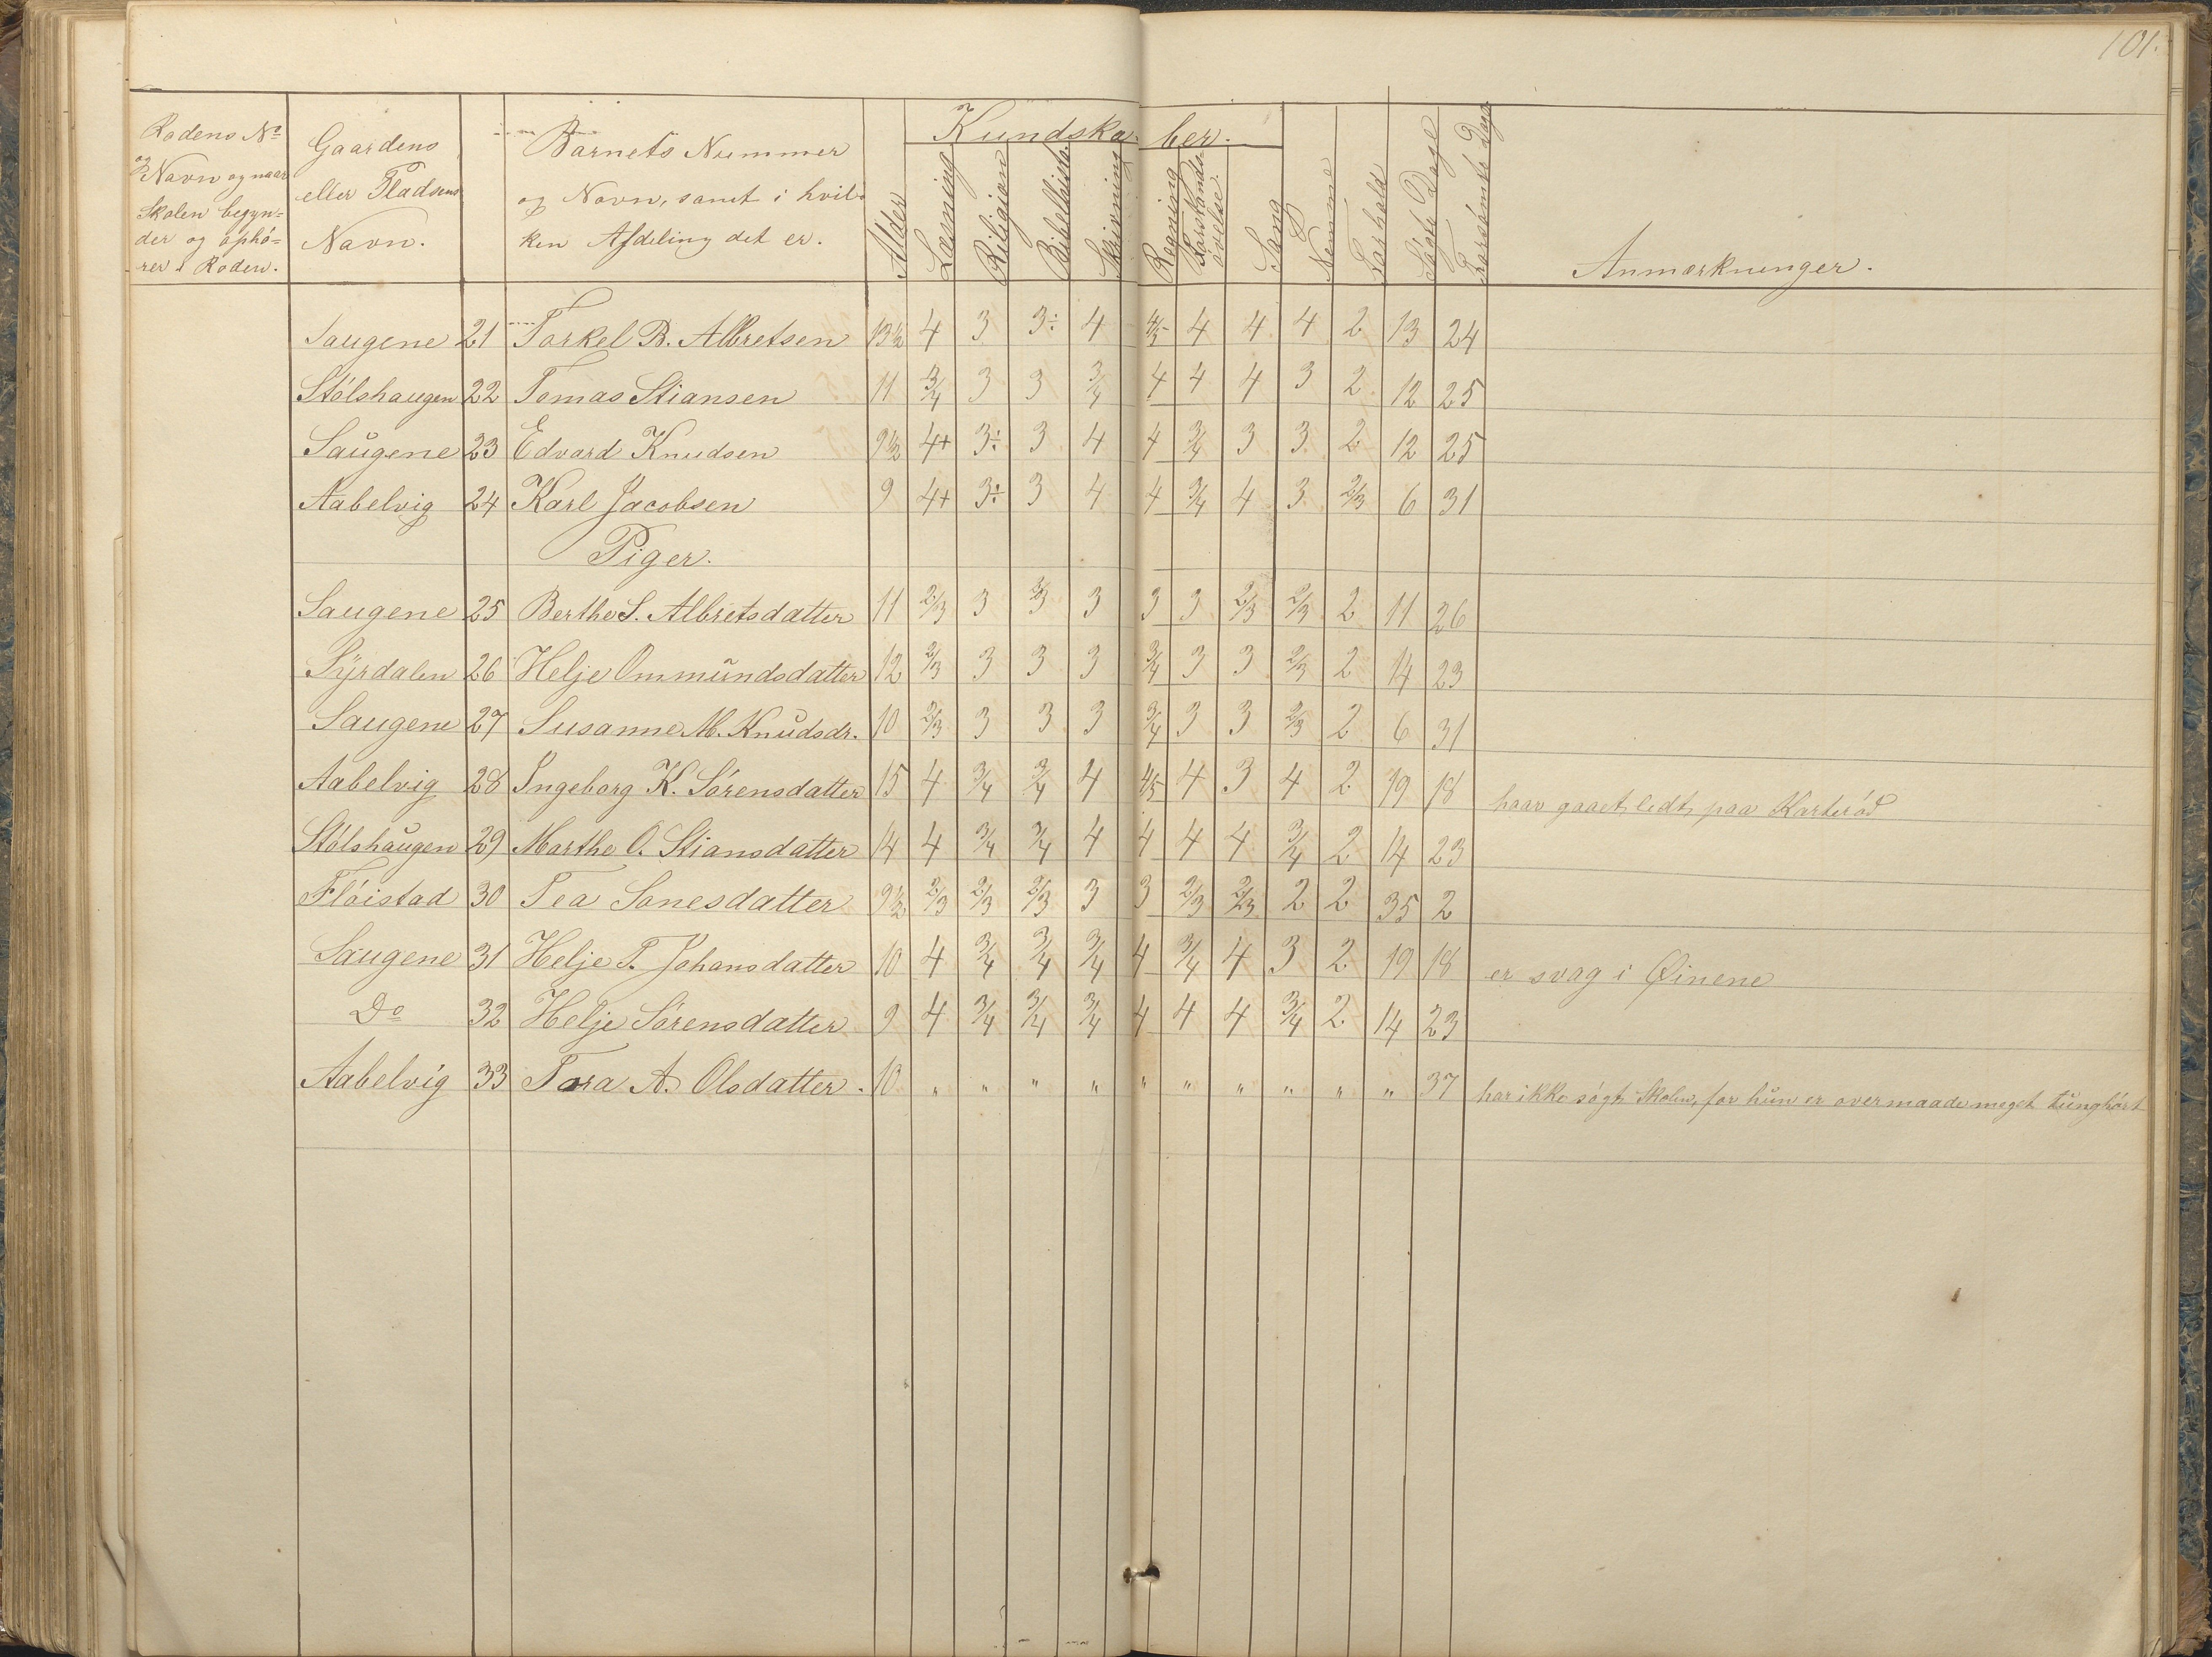 101.
Rodens No og Navn og naar Skolen begyn= der og ophö= rer i Roden.
Gaardens eller Pladsens Navn.
Barnets Nummer og Navn, samt i hvil= ken Afdeling det er.
Alder
Kundska ber.
Læsning
Religion
Bibelhisto.
Skrivning
Regning
Forstands övelse.
Sang
Nemme
Forhold
Sögte Dage
Forsömte Dage
Anmærkninger.
Saugene 21 Torkel B. Albretsen 13½ 4 3 3÷ 4 4/5 4 4 4 2 13 24
Stölshaugen 22 Tomas Stiansen 11 3/4 3 3 3/4 4 4 4 3 2 12 25
Saugene 23 Edvard Knudsen 9½ 4+ 3÷ 3 4 4 3/4 3 3 2 12 25
Aabelvig 24 Karl Jacobsen 9 4+ 3÷ 3 4 4 3/4 4 3 2/3 6 31
Piger.
Saugene 25 Berthe S. Albretsdatter 11 2/3 3 2/3 3 3 3 2/3 2/3 2 11 26
Syrdalen 26 Helje Ommundsdatter 12 2/3 3 3 3 3/4 3 3 2/3 2 14 23
Saugene 27 Susanne M. Knudsdr. 10 2/3 3 3 3 3/4 3 3 2/3 2 6 31
Aabelvig 28 Ingeborg K. Sörensdatter 15 4 3/4 3/4 4 4/5 4 3 4 2 19 18 haar gaaet ledt paa Karteröd
Stölshaugen 29 Marthe O. Stiansdatter 14 4 3/4 3/4 4 4 4 4 3/4 2 14 23
Flöistad 30 Tea Tonesdatter 9½ 2/3 2/3 2/3 3 3 2/3 2/3 2 2 35 2
Saugene 31 Helje T. Johansdatter 10 4 3/4 3/4 3/4 4 3/4 4 3 2 19 18 er svag i Øinene
Do 32 Helje Sörensdatter 9 4 3/4 3/4 3/4 4 4 4 3/4 2 14 23
Aabelvig 33 Tora A. Olsdatter. 10 " " " " " " " " " " 37 har ikke sögt Skolen, for hun er overmaade meget tunghört